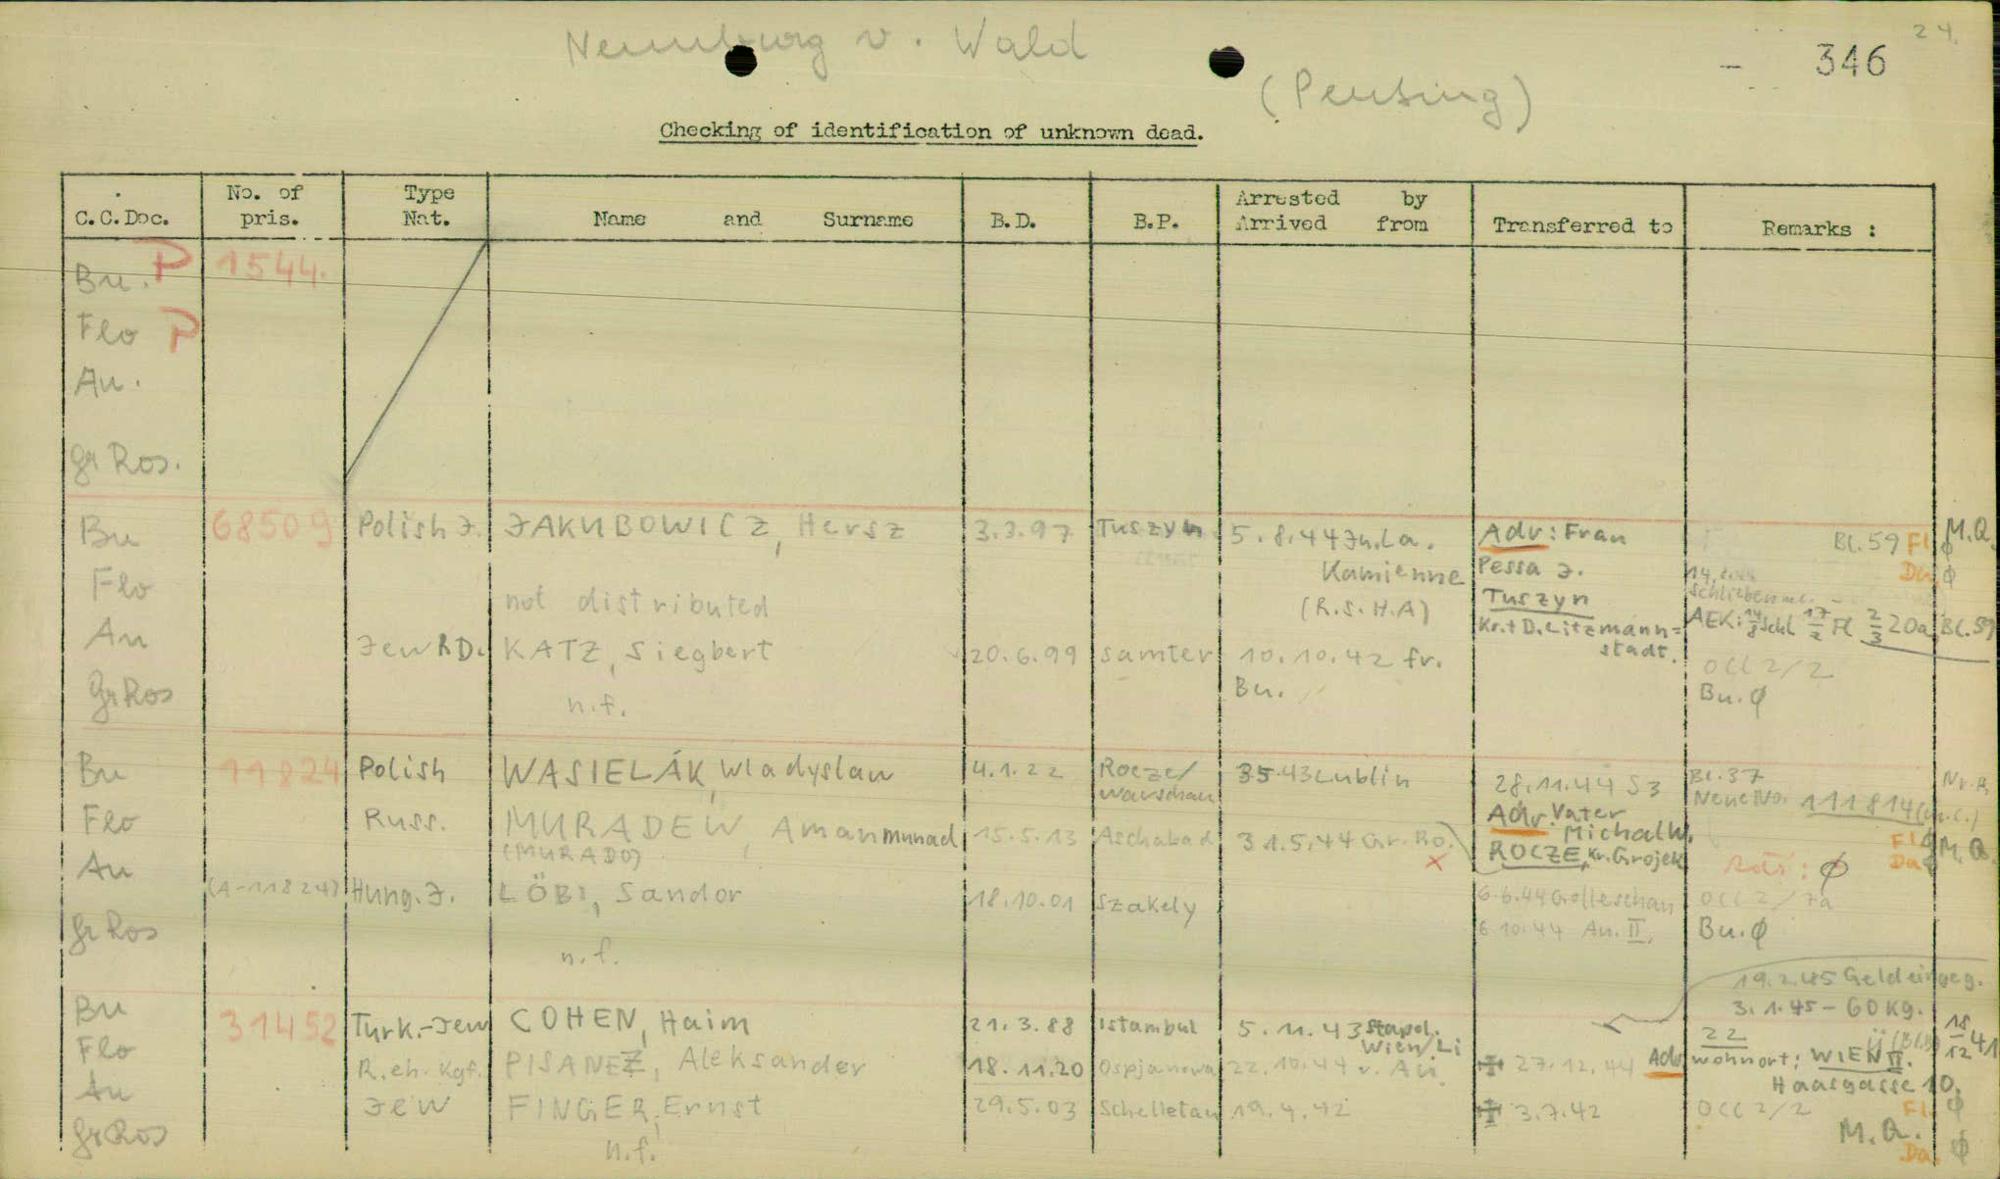 24.
Neunburg v. Wald
- 346
(Pensing)
Checking of identification of unknown dead.
C.C.Doc.
No. of pris.
Type Nat.
Name and Surname
B.D.
B.P.
Arrested by
Arrived from
Transferred to
Remarks :
Bu. P 1544.
Flo P
Au.
Gr Ros.
Bu 68509 Polish J. JAKUBOWICZ, Hersz 3.3.97 Tuszyn 5.8.44 Ju.La. Adr: Frau Bl.59 Fl ϕ M.Q.
Flo Kamienne Pessa J. Da ϕ
not distributed (R.S.H.A) Tuszyn Schlieben
Kr.+D.Litzmann= AEK: 14/8 Schl 17/2 Fl 2/3 20a Bl.59
Au Jew RD. KATZ, Siegbert 20.6.99 Samter 10.10.42 fr. stadt. OCC 2/2
Gr Ros n.f. Bu. Bu.ϕ
Bu 11824 Polish WASIELÁK, Wladyslaw 4.1.22 Rocze/ 35.43 Lublin 28.11.44 S3 Bl.37
Warschau Neue No. 111814
Flo Russ. MURADEW, Amanmurad 15.5.13 Aschabad 31.5.44 Gr.Ro. Adr. Vater Fl ϕ M.Q.
(MURADO) x Michal W. Da
Au ROCZE, Kr. Grojek ϕ
(A-11824) Hung.J. LÖBI, Sandor 18.10.01 Szakely 6.6.44 Golleschau OCC 2/7a
Gr Ros 6.10.44 Au. II. Bu.ϕ
n.f.
19.2.45 Geld eingeg.
3.1.45 - 60 Kg.
Bu 31452 Turk.-Jew COHEN, Haim 21.3.88 Istambul 5.11.43 Stapol. 22 15/12 41
Flo Wien/Li
R.eh. Kgf. PISANEZ, Aleksander 18.11.20 Ospjanowa 22.10.44 v. Au. ✠ 27.12.44 Adr wohnort: WIEN II.
Au Haasgasse 10.
Jew FINGER, Ernst 29.5.03 Schelletau 19.4.42 ✠ 3.7.42 OCC 2/2 Fl. ϕ
Gr Ros M.Q.
n.f. Da. ϕ